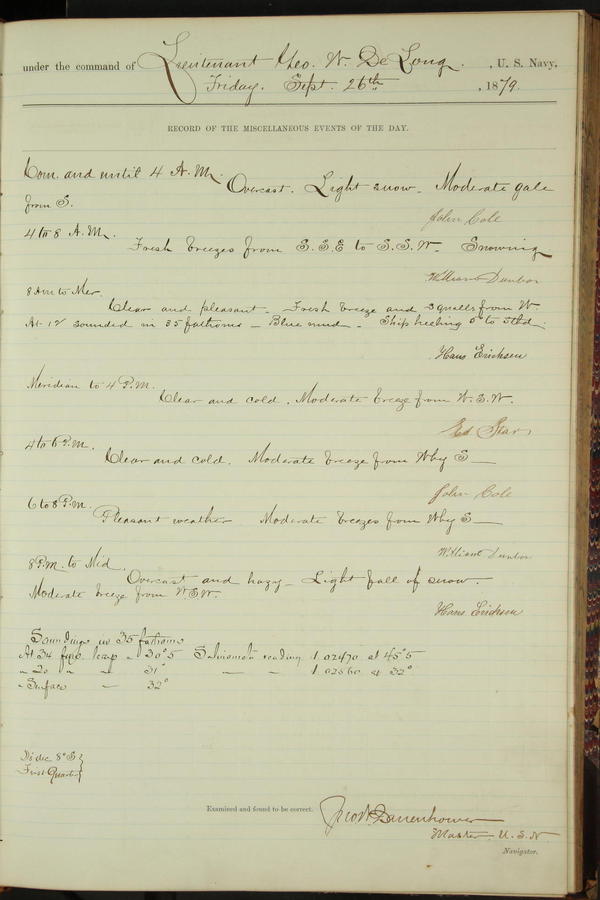 under the command of Lieutenant Geo. W. De Long. , U. S. Navy,
Friday. Sept. 26th , 1879.
RECORD OF THE MISCELLANEOUS EVENTS OF THE DAY.
Com. and until 4 A.M.
Overcast. Light snow. Moderate gale
from S.
John Cole
4 to 8 A.M.
Fresh breezes from S.S.E to S.S.W. Snowing
William Dunbar
8 A.M to Mer.
Clear and pleasant. Fresh breeze and squalls from W.
At 12 sounded in 35 fathoms — Blue mud. Ship heeling 5° to Stbd.
Hans Erichsen
Meridian to 4 P.M.
Clear and cold. Moderate breeze from W.S.W.
Ed Star
4 to 6 P.M.
Clear and cold. Moderate breeze from W by S —
John Cole
6 to 8 P.M.
Pleasant weather Moderate breezes from W by S —
William Dunbar
8 P.M. to Mid.
Overcast and hazy — Light fall of snow.
Moderate breeze from W.S.W.
Hans Erichsen
Soundings in 35 fathoms
At 34 fms. temp — 30°5 reading 1.02470 at 45°5
" 20 " " — 31° — — 1.02560 at 32°
" Surface — 32°
dec 8° S
First Quarter
Examined and found to be correct.
Danenhower
Master U.S.N
Navigator.